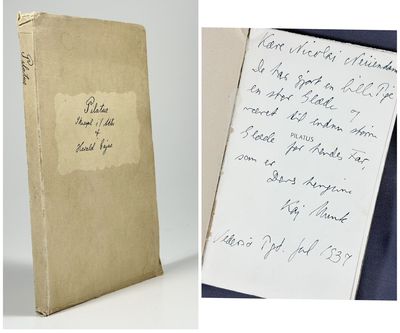 Pilatus
Pilatus
Skuespil i 4 Akter
af
Harald Tajus
Kære Nicolai Neiiendam
De har gjort en lille Pige
en stor Glæde og
været til endnu større
Glæde for hendes Far,
PILATUS
som er
Deres hengivne
Kaj Munk
Vedersø Pgd. Jul 1937